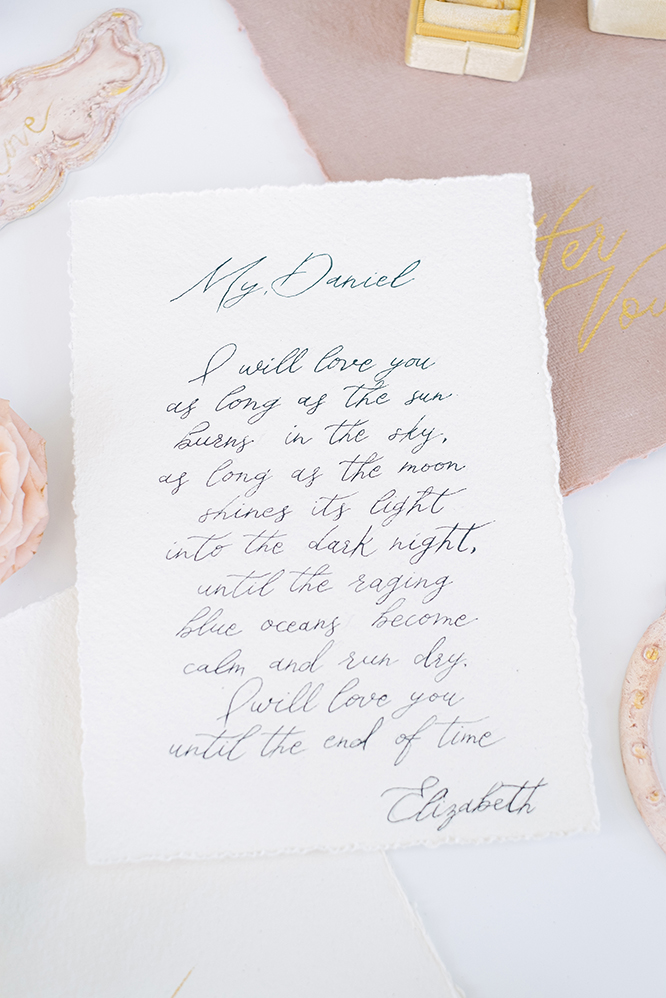 love
My, Daniel
I will love you
as long as the sun
burns in the sky,
as long as the moon
shines its light
into the dark night,
until the raging
blue oceans become
calm and run dry.
I will love you
until the end of time
Elizabeth